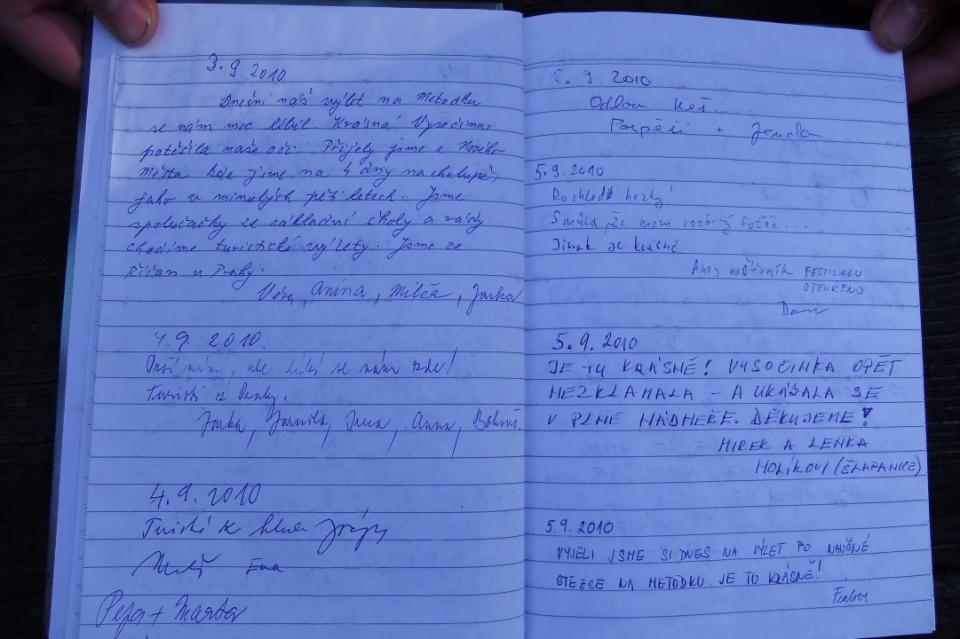 3.9.2010
Dnešní náš výlet na Metodku
se nám moc líbil. Krásná Vysočina
potěšila naše oči. Přijely jsme z Nového
Města kde jsme na 4 dny na chalupě,
jako v minulých pěti letech. Jsme
spolužačky ze základní školy a rády
chodíme turistické výlety. Jsme ze
Říčan u Prahy.
Věra, Anina, Milča, Jarka
4.9.2010.
Prší nám, ale líbí se nám zde!
Turisti z Prahy.
Jarka, Jarmila, Jana, Anna, Bohouš.
4.9.2010
Turisté z
Eva
Pepa + Marta
5.9.2010
Odlov keš...
Pospíšil + Jenda
5.9.2010
Rozhled hezký!
Smůla že mám foťák...
Jinak je krásně
Ahoj FESTIVALU
OTEVŘENO
Dan
5.9.2010
JE TU KRÁSNĚ! VYSOČINKA OPĚT
NEZKLAMALA - A UKÁZALA SE
V PLNÉ NÁDHEŘE. DĚKUJEME!
MIREK A LENKA
HOLÍKOVI (ŠLAPANICE)
5.9.2010
VYJELI JSME SI DNES NA VÝLET PO NAUČNÉ
STEZCE NA METODKU. JE TO KRÁSNÉ!